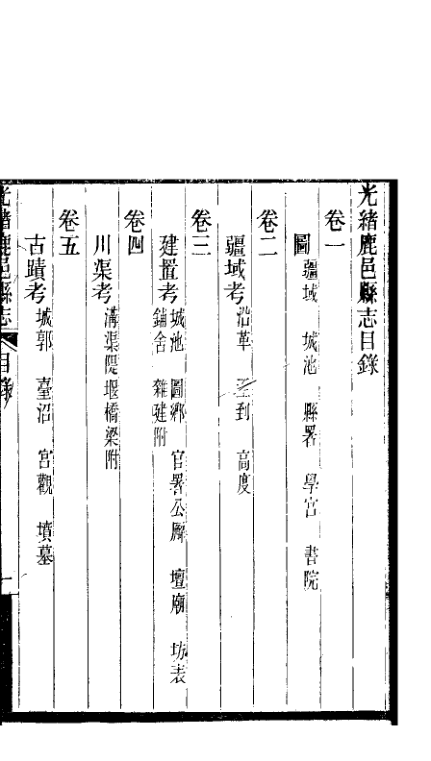 光緒鹿邑縣志目錄
卷一
圖疆域 城池 縣署 學宮 書院
卷二
疆域考沿革 至到 高度
卷三
建置考城池 圖鄉 官署公廨 壇廟 坊表
鋪舍 雜建附
卷四
川渠考溝渠隄堰橋梁附
卷五
古蹟考城郭 臺沼 宮觀 墳墓
光緒鹿邑縣志 目錄 一